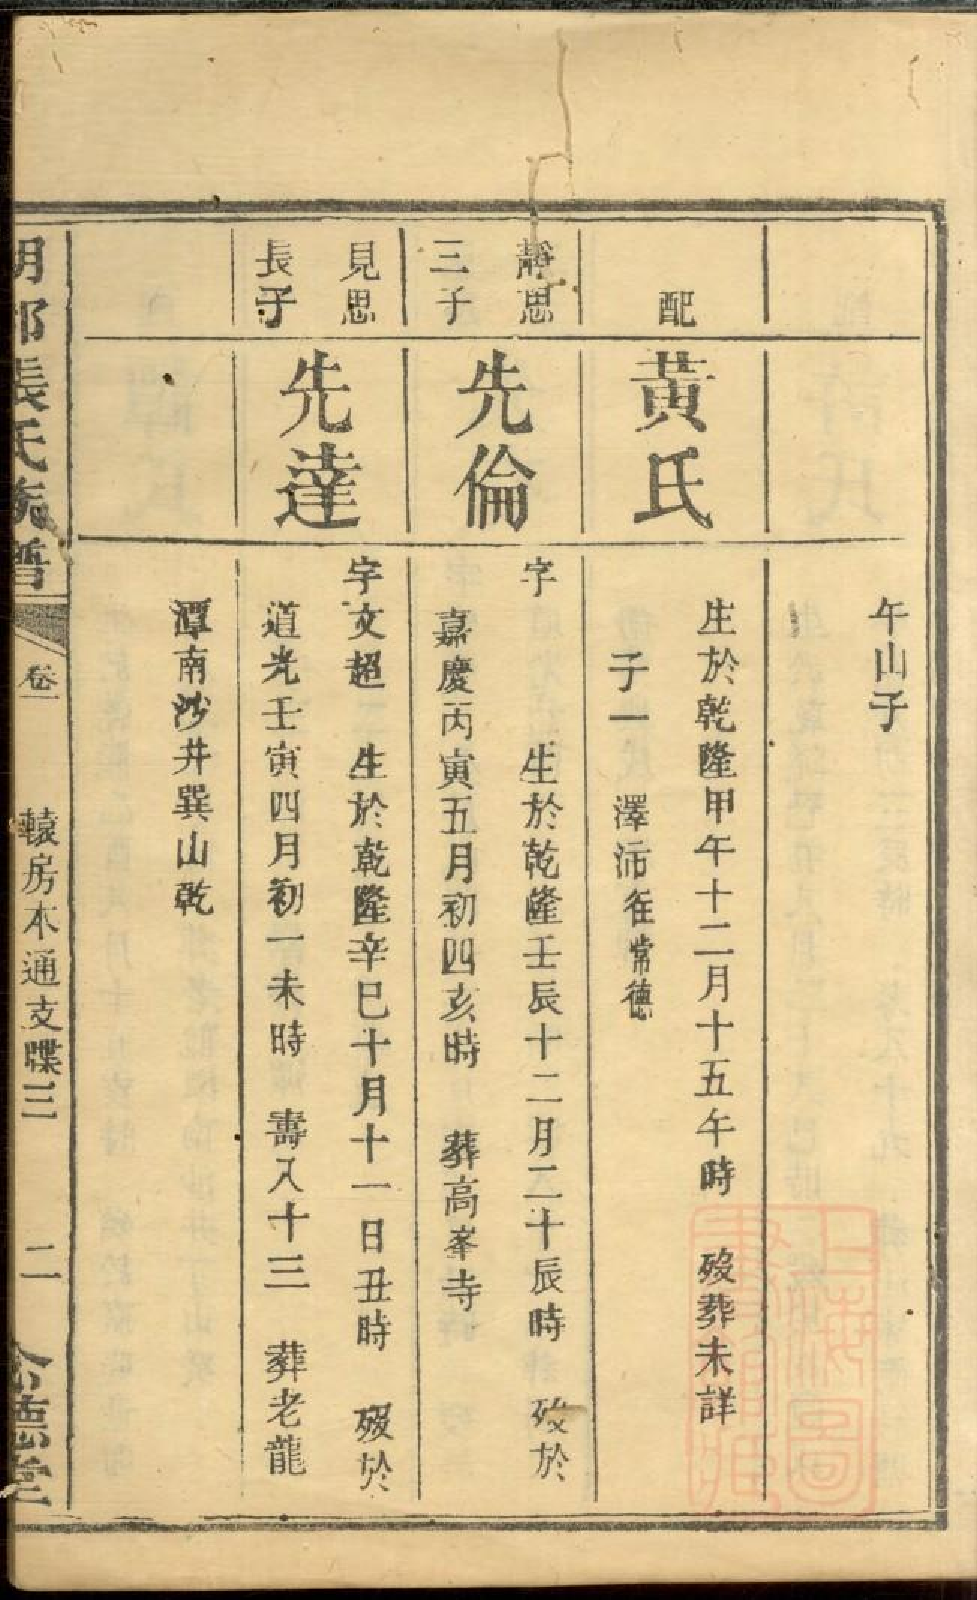 午山子
配
黃氏
生於乾隆甲午十二月十五午時 歿葬未詳
子一 澤沛往常德
靜思
三子
先倫
字 生於乾隆壬辰十二月二十辰時 歿於
嘉慶丙寅五月初四亥時 葬高峯寺
見思
長子
先達
字文超 生於乾隆辛巳十月十一日丑時 歿於
道光壬寅四月初一未時 壽八十三 葬老龍
潭南沙井巽山乾
張氏族譜
卷
轅房本通支牒三
二
德堂
上海圖
書館藏